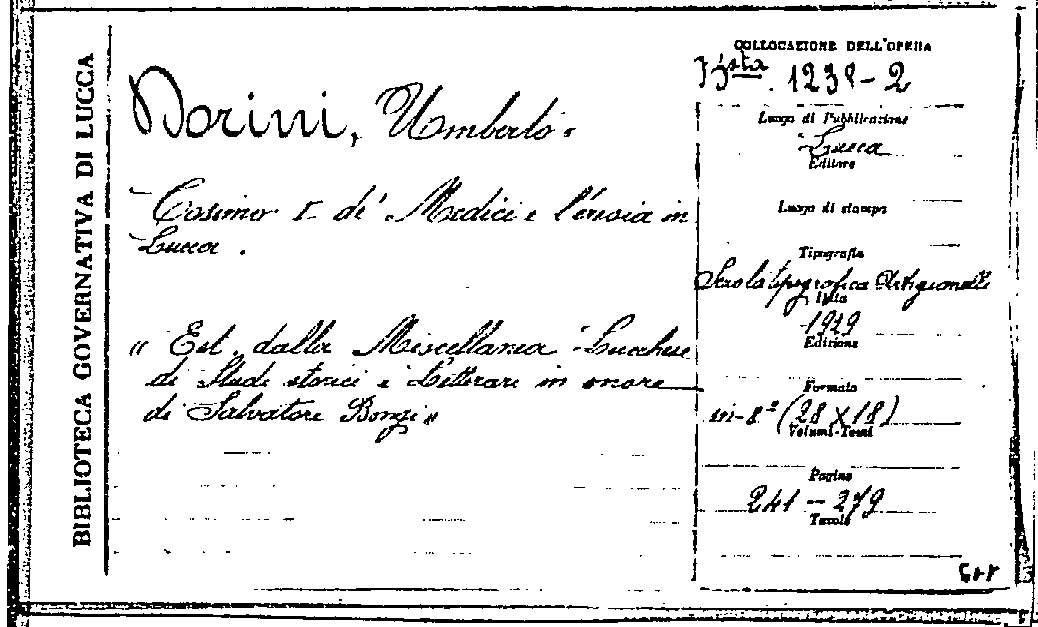 BIBLIOTECA GOVERNATIVA DI LUCCA
Dorini, Umberto.
Cosimo I de' Medici e l'eresia in
Lucca.
"Est. dalla Miscellanea Lucchese
di Studi storici e letterari in onore
di Salvatore Bongi"
COLLOCAZIONE DELL'OPERA
1238-2
Luogo di Pubblicazione
Lucca
Editore
Luogo di stampa
Tipografia
Scuola tipografica Artigianelli
Data
1929
Edizione
Formato
in-8º (28 x 18)
Volumi-Tomi
Pagine
241 - 279
Tavole